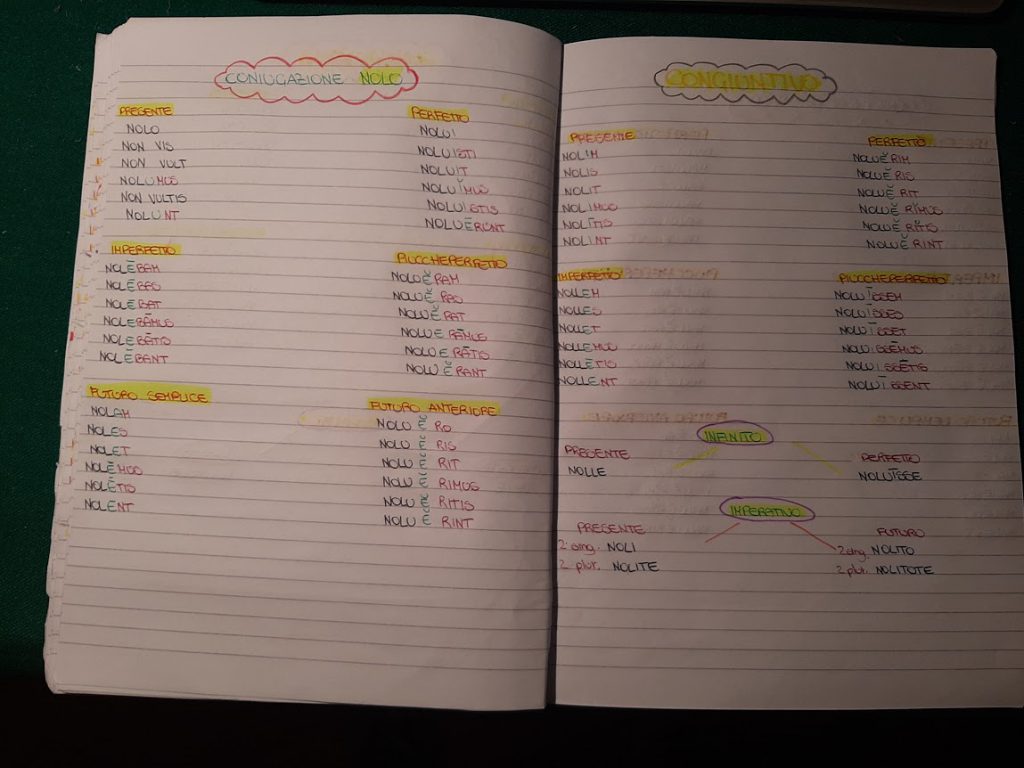 CONIUGAZIONE NOLO
PRESENTE
NOLO
NON VIS
NON VULT
NOLUMUS
NON VULTIS
NOLUNT
PERFETTO
NOLUI
NOLUISTI
NOLUIT
NOLUĬMUS
NOLUISTIS
NOLUĒRUNT
IMPERFETTO
NOLĒBAM
NOLĒBAS
NOLĒBAT
NOLEBĀMUS
NOLEBĀTIS
NOLĒBANT
PIUCCHEPERFETTO
NOLUĔRAM
NOLUĔRAS
NOLUĔRAT
NOLUERĀMUS
NOLUERĀTIS
NOLUĔRANT
FUTURO SEMPLICE
NOLAM
NOLES
NOLET
NOLĒMUS
NOLĒTIS
NOLENT
FUTURO ANTERIORE
NOLUĔRO
NOLUĔRIS
NOLUĔRIT
NOLUĔRIMUS
NOLUĔRITIS
NOLUĔRINT
CONGIUNTIVO
PRESENTE
NOLIM
NOLIS
NOLIT
NOLIMUS
NOLĪTIS
NOLINT
PERFETTO
NOLUĔRIM
NOLUĔRIS
NOLUĔRIT
NOLUĔRĬMUS
NOLUĔRĬTIS
NOLUĔRINT
IMPERFETTO
NOLLEM
NOLLES
NOLLET
NOLLEMUS
NOLLĒTIS
NOLLENT
PIUCCHEPERFETTO
NOLUĪSSEM
NOLUĪSSES
NOLUĪSSET
NOLUISSĒMUS
NOLUISSĒTIS
NOLUĪSSENT
INFINITO
PRESENTE
NOLLE
PERFETTO
NOLUĪSSE
IMPERATIVO
PRESENTE
2ª sing. NOLI
2ª plur. NOLITE
FUTURO
2ª sing. NOLITO
2ª plur. NOLITOTE